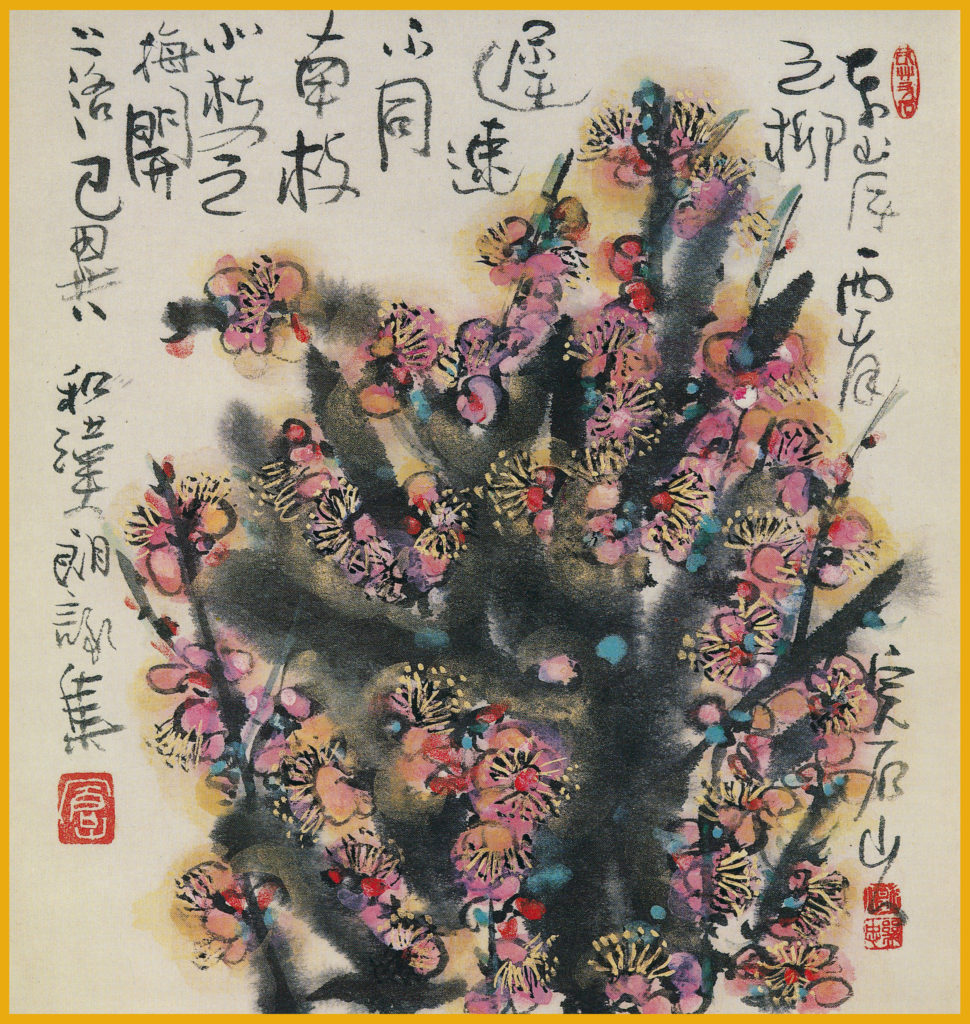 東岸西岸
之柳
遲速
不同
南枝
北枝之
梅開
落已異
和漢朗詠集
石山